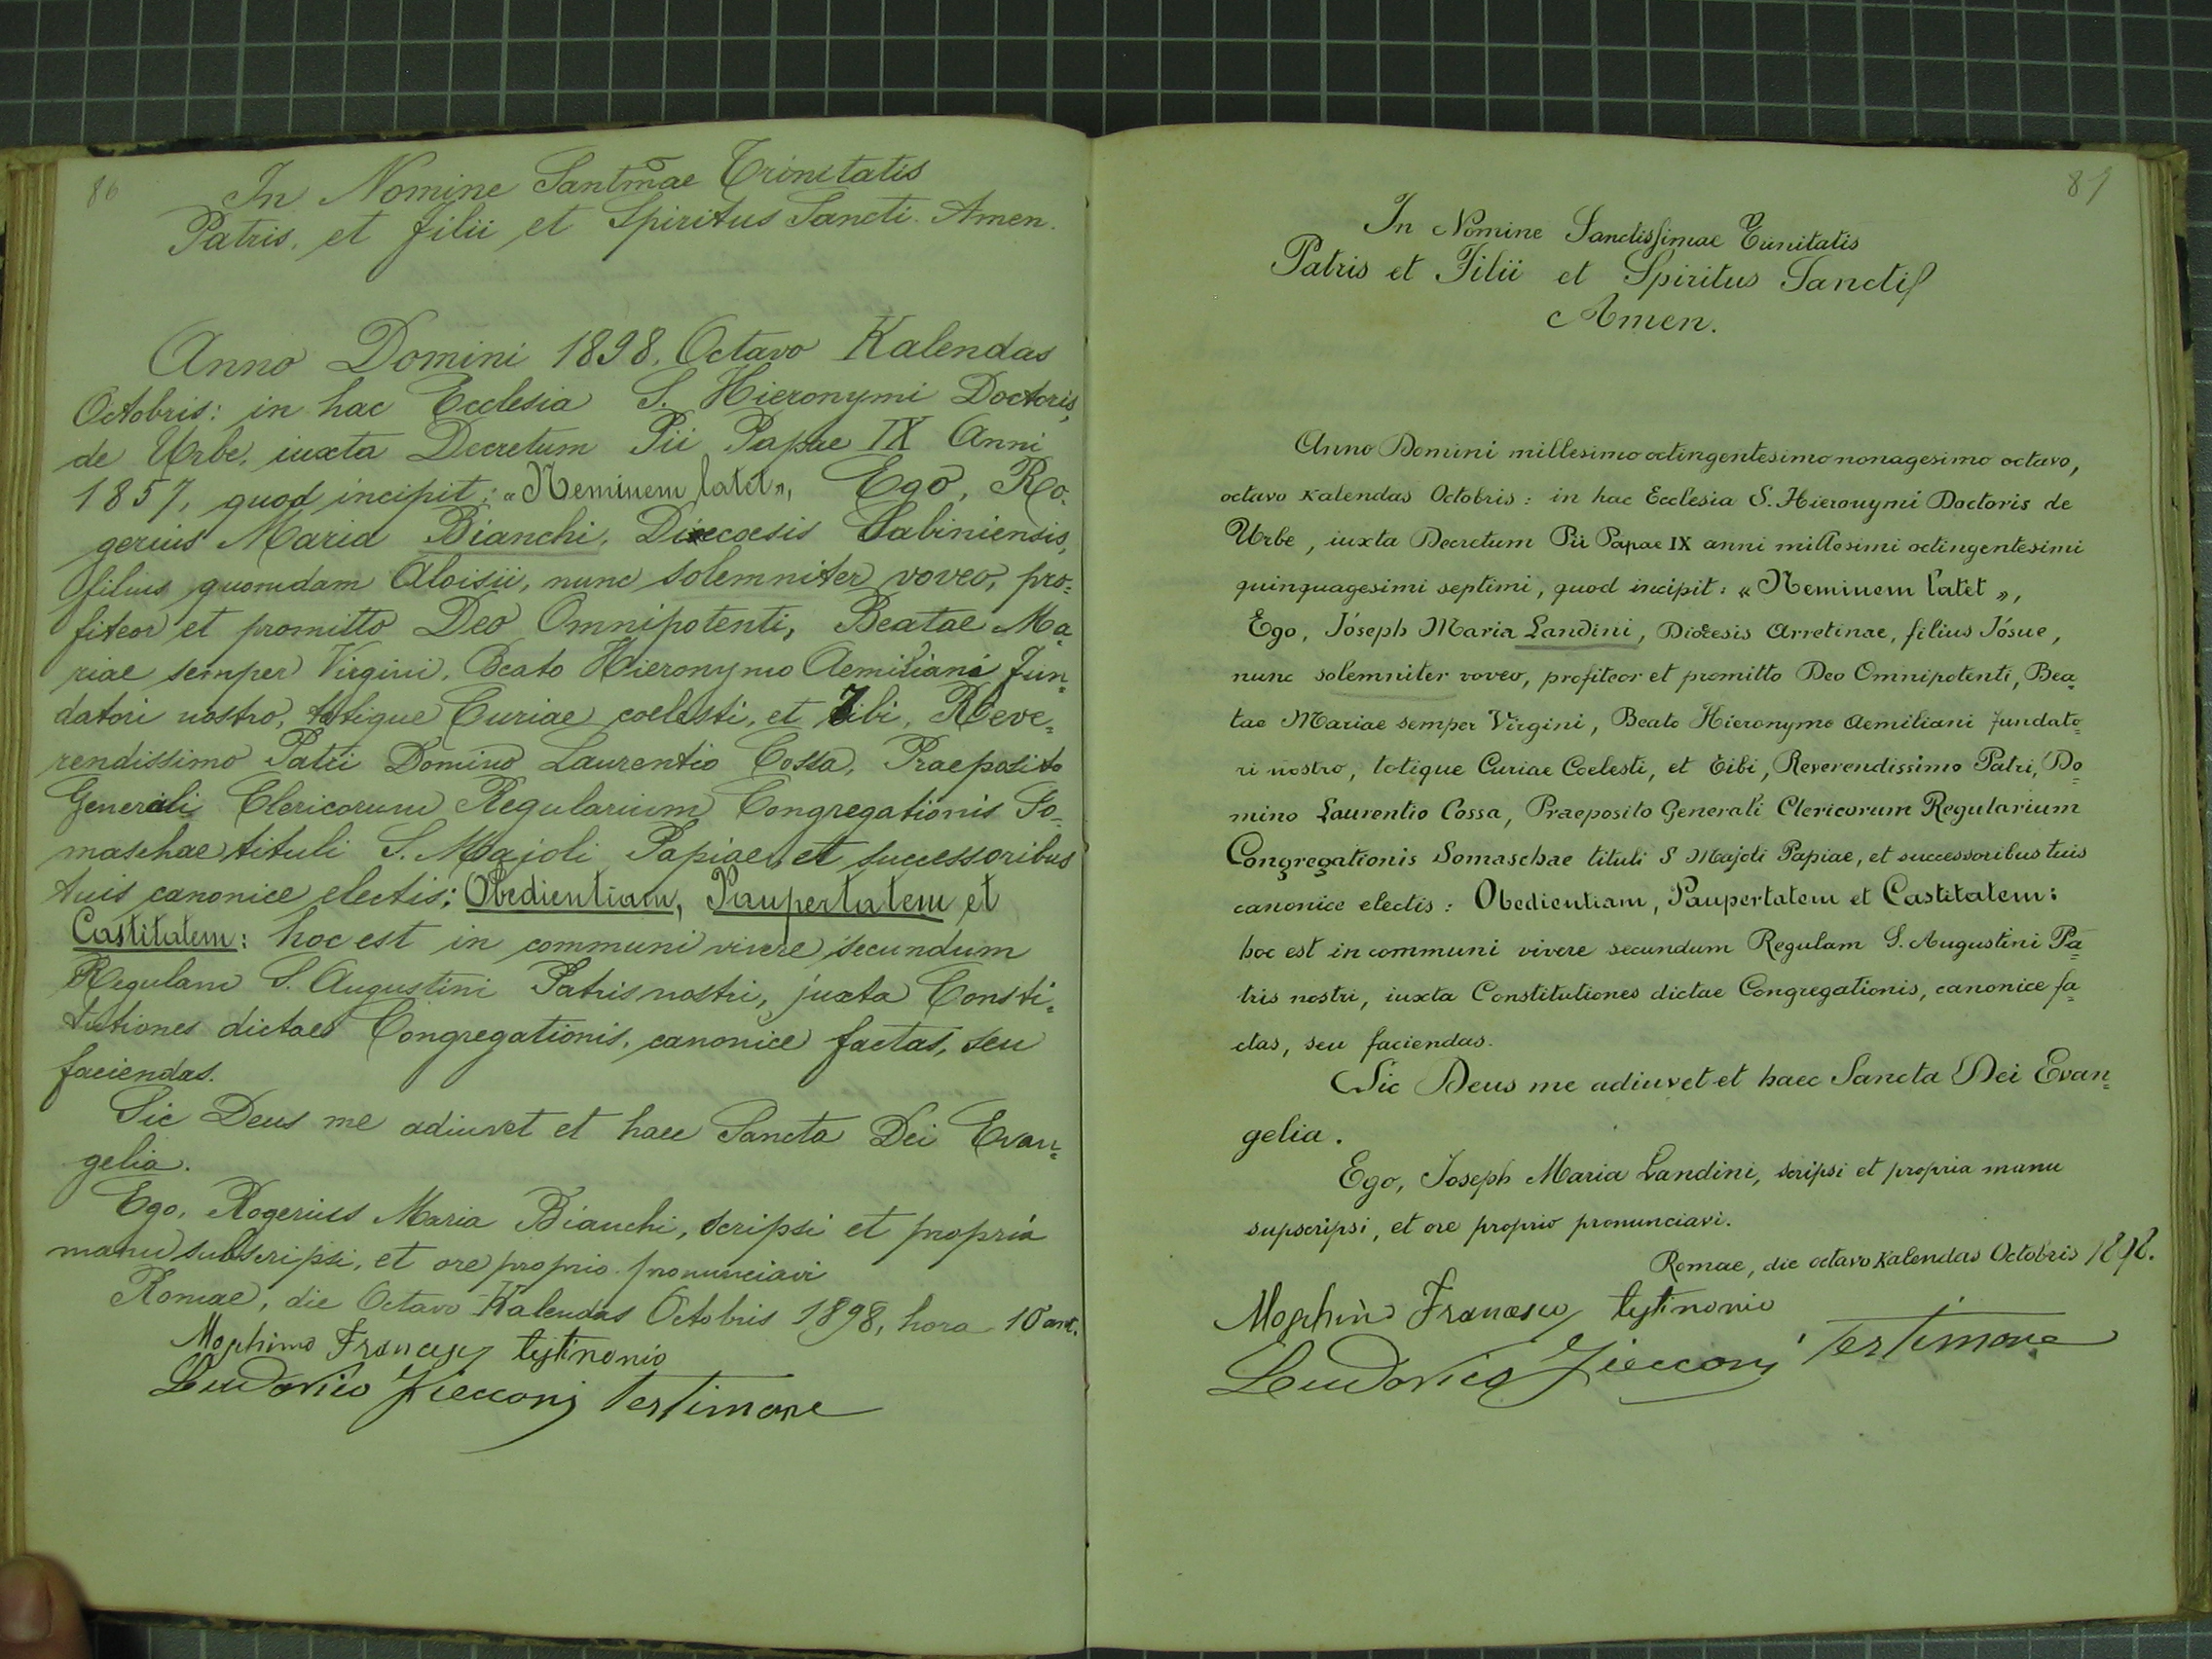 86
In Nomine Santmae Trinitatis
Patris, et Filii et Spiritus Sancti. Amen.
Anno Domini 1898. Octavo Kalendas
Octobris: in hac Ecclesia S. Hieronymi Doctoris,
de Urbe, iuxta Decretum Pii Papae IX Anni
1857, quod incipit: «Neminem latet», Ego, Ro-
gerius Maria Bianchi, Dioecoesis Sabiniensis,
filius quondam Aloisii, nunc solemniter voveo, pro=
fiteor et promitto Deo Omnipotenti, Beatae Ma
riae semper Virgini, Beato Hieronymo Aemiliani Fun=
datori nostro, totique Curiae coelesti, et Tibi, Reve=
rendissimo Patri Domino Laurentio Cossa, Praeposito
Generali Clericorum Regularium Congregationis So=
maschae tituli S. Majoli Papiae, et successoribus
tuis canonice electis; Obedientiam, Paupertatem et
Castitatem: hoc est in communi vivere secundum
Regulam S. Augustini Patris nostri, juxta Consti=
tutiones dictae Congregationis, canonice factas, seu
faciendas.
Sic Deus me adiuvet et haec Sancta Dei Evan=
gelia.
Ego, Rogerius Maria Bianchi, scripsi et propria
manu subscripsi, et ore proprio pronunciavi
Romae, die Octavo Kalendas Octobris 1898, hora 10 ant.
Francesco testimonio
Ludovico testimone
87
In Nomine Sanctissimae Trinitatis
Patris et Filii et Spiritus Sancti
Amen.
Anno Domini millesimo octingentesimo nonagesimo octavo,
octavo Kalendas Octobris: in hac Ecclesia S. Hieronymi Doctoris de
Urbe, iuxta Decretum Pii Papae IX anni millesimi octingentesimi
quinquagesimi septimi, quod incipit: «Neminem latet»,
Ego, Jóseph Maria Landini, Diócesis Arretinae, filius Jósue,
nunc solemniter voveo, profiteor et promitto Deo Omnipotenti, Bea=
tae Mariae semper Virgini, Beato Hieronymo Aemiliani fundato=
ri nostro, totique Curiae Coelesti, et Tibi, Reverendissimo Patri, Do=
mino Laurentio Cossa, Praeposito Generali Clericorum Regularium
Congregationis Somaschae tituli S Majoli Papiae, et successoribus tuis
canonice electis: Obedientiam, Paupertatem et Castitatem:
hoc est in communi vivere secundum Regulam S. Augustini Pa=
tris nostri, iuxta Constitutiones dictae Congregationis, canonice fa=
ctas, seu faciendas.
Sic Deus me adiuvet et haec Sancta Dei Evan=
gelia.
Ego, Joseph Maria Landini, scripsi et propria manu
supscripsi, et ore proprio pronunciavi.
Romae, die octavo Kalendas Octobris 1898.
Francesco testimonio
Ludovico testimone